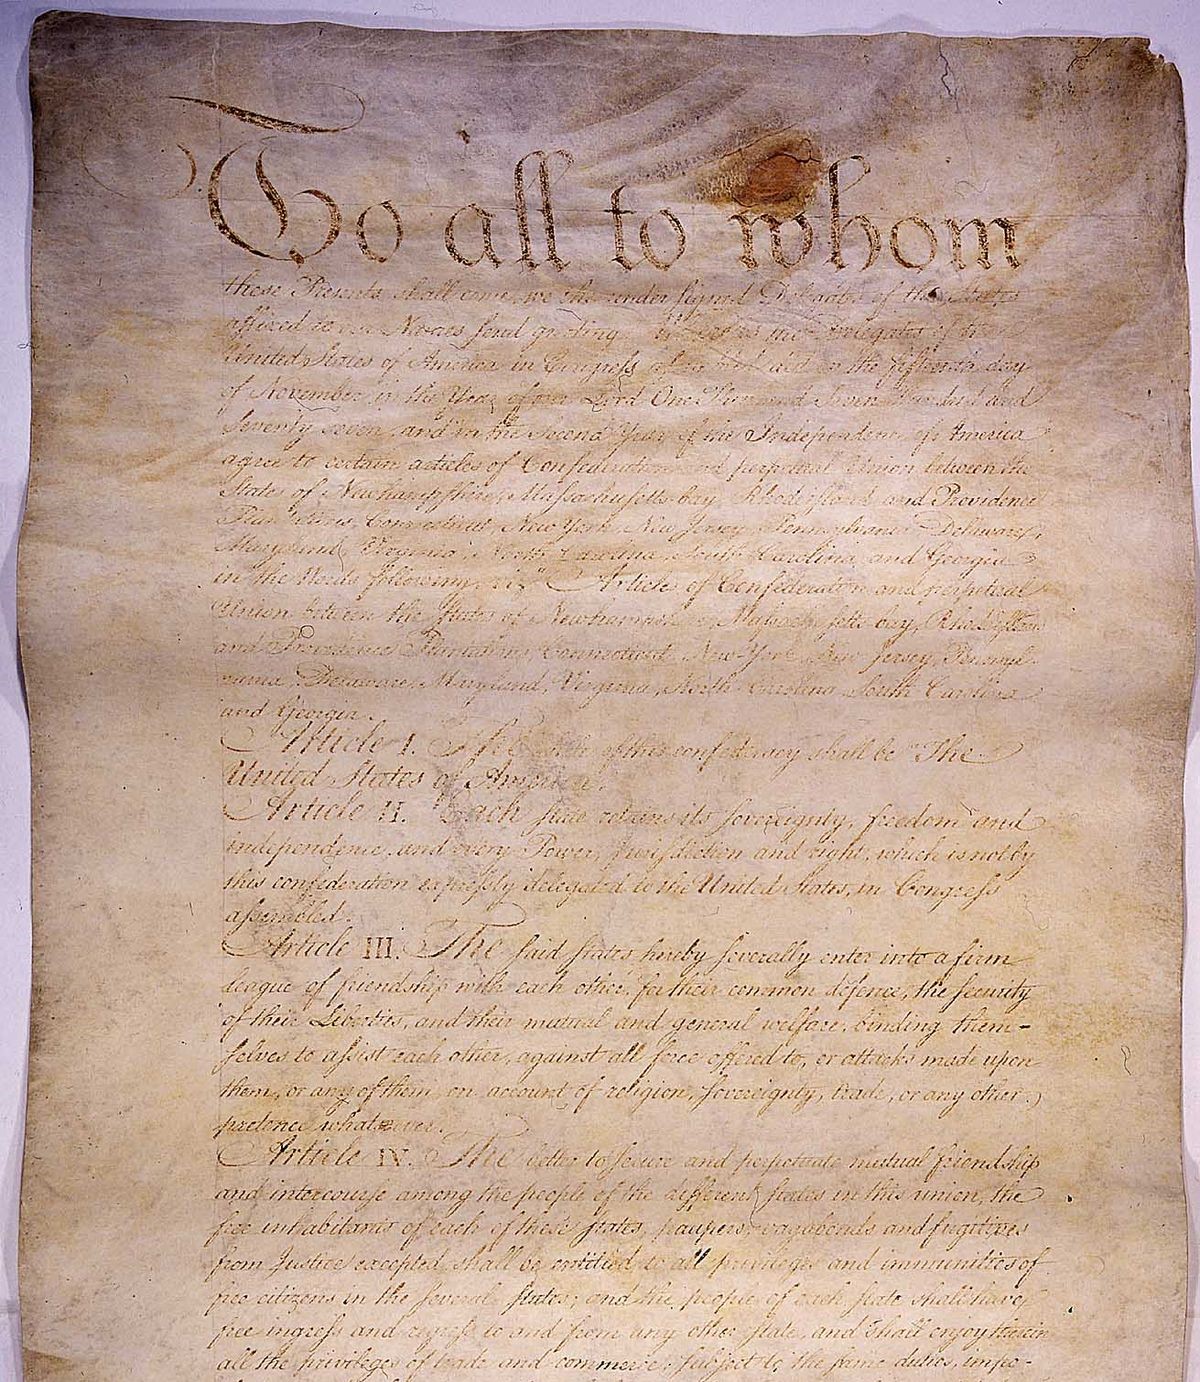 To all to whom
these Presents shall come, we the under signed Delegates of the States
affixed to our Names send greeting. Whereas the Delegates of the
United States of America in Congress assembled did on the fifteenth day
of November in the Year of our Lord One Thousand Seven Hundred and
Seventy seven, and in the Second Year of the Independence of America
agree to certain articles of Confederation and perpetual Union between the
States of Newhampshire, Massachusetts-bay, Rhodeisland and Providence
Plantations, Connecticut, New York, New Jersey, Pennsylvania, Delaware,
Maryland, Virginia, North-Carolina, South-Carolina, and Georgia
in the Words following, viz. "Articles of Confederation and perpetual
Union between the States of Newhampshire, Massachusetts-bay, Rhodeisland
and Providence Plantations, Connecticut, New-York, New-Jersey, Pennsyl-
vania, Delaware, Maryland, Virginia, North-Carolina, South-Carolina
and Georgia.
Article I. The Stile of this confederacy shall be "The
United States of America."
Article II. Each state retains its sovereignty, freedom and
independence, and every Power, Jurisdiction and right, which is not by
this confederation expressly delegated to the United States, in Congress
assembled.
Article III. The said states hereby severally enter into a firm
league of friendship with each other, for their common defence, the security
of their Liberties, and their mutual and general welfare, binding them-
selves to assist each other, against all force offered to, or attacks made upon
them, or any of them, on account of religion, sovereignty, trade, or any other
pretence whatever.
Article IV. The better to secure and perpetuate mutual friendship
and intercourse among the people of the different states in this union, the
free inhabitants of each of these states, paupers, vagabonds and fugitives
from Justice excepted, shall be entitled to all privileges and immunities of
free citizens in the several states; and the people of each state shall have
free ingress and regress to and from any other state, and shall enjoy therein
all the privileges of trade and commerce, subject to the same duties, impo-